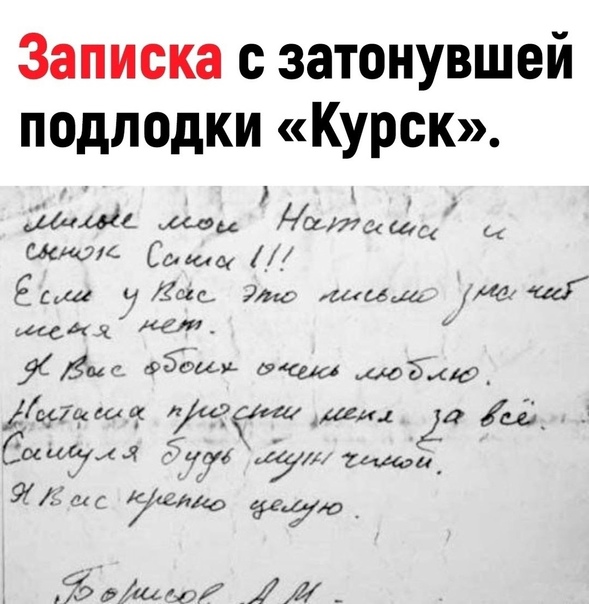 Записка с затонувшей
подлодки «Курск».
милые мои Наташа и
сынок Саша!!!
Если у Вас это письмо значит
меня нет.
Я Вас обоих очень люблю.
Наташа прости меня за всё.
Сашуля будь мужчиной.
Я Вас крепко целую.
Борисов А.М.